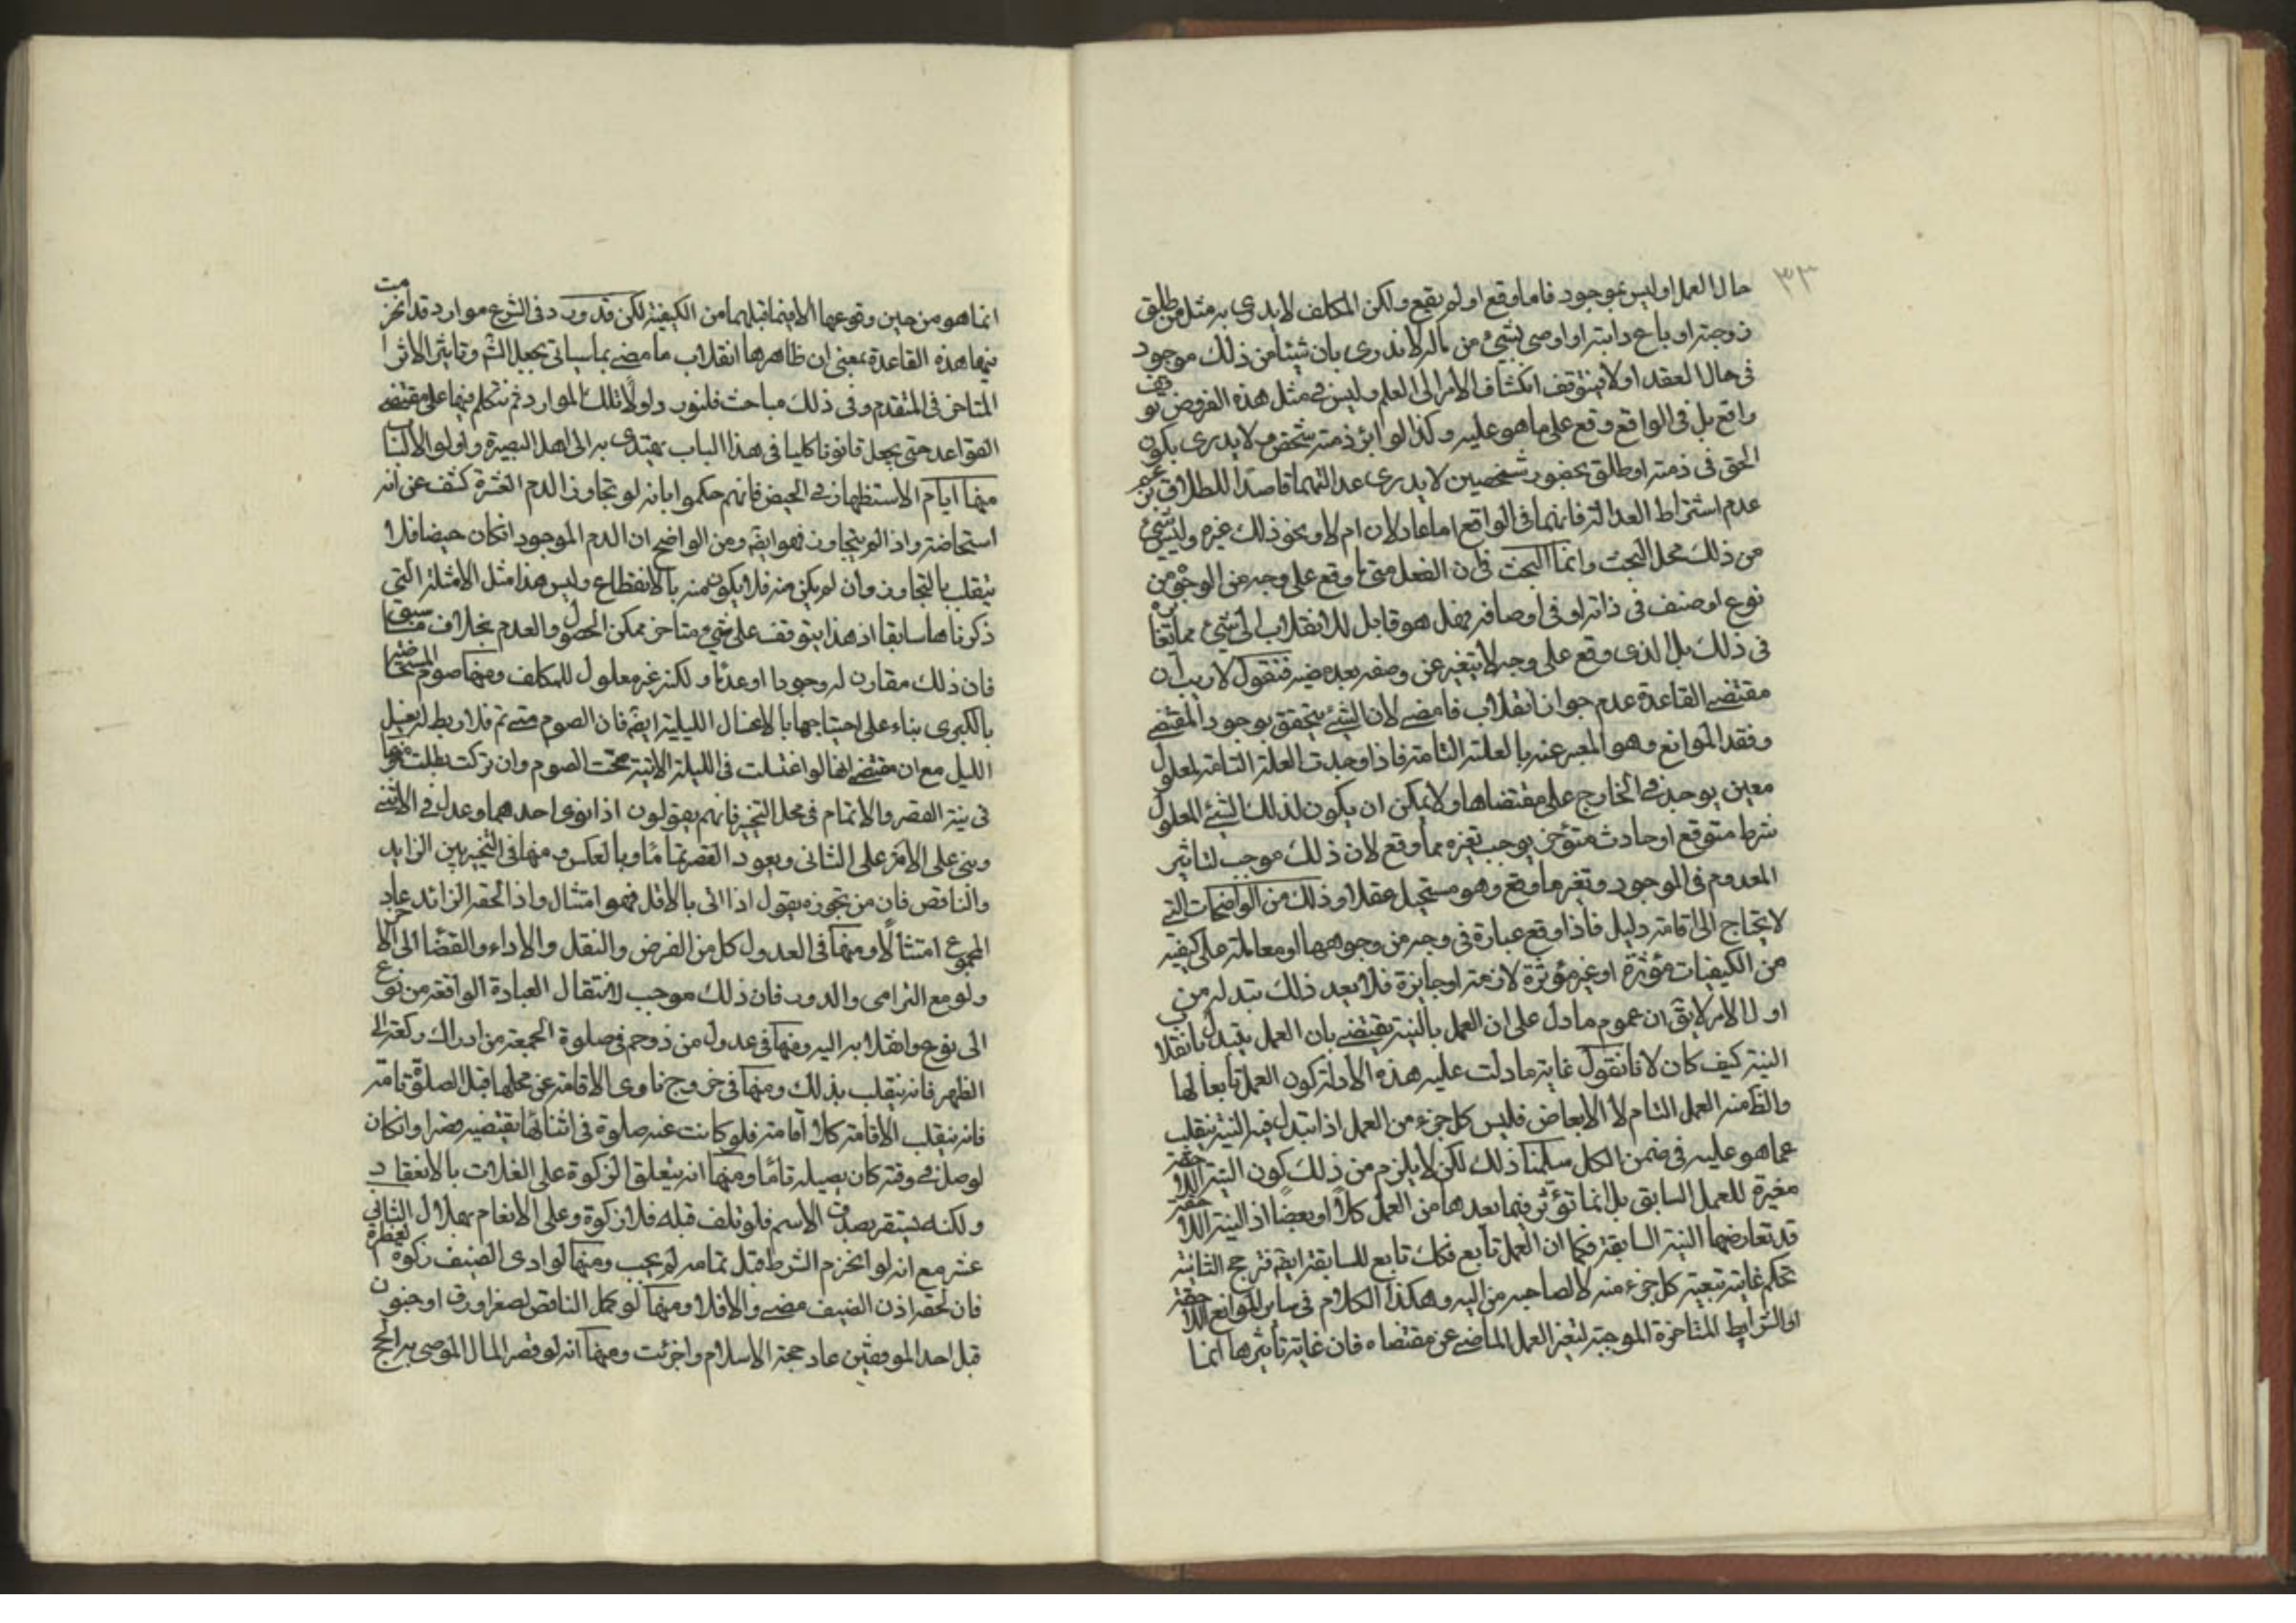 ٣٣
حال العمل او ليس بموجود فاما وقع او لم يقع ولكن المكلف لا يدرى به مثل من طلق
زوجته او باع دابته او اوصى بشئ من ماله لا ندرى بان شيئا من ذلك موجود
فى حال العقد او لا فيتوقف انكشاف الامر الى العلم وليس فى مثل هذه الفروض توقف
واقع بل فى الواقع وقع على ما هو عليه وكذا لو ابرء ذمته شخص لا يدرى بكون
الحق فى ذمته او طلق بحضور شخصين لا يدرى عدالتهما قاصدا للطلاق بزعم
عدم اشتراط العدالة فانهما فى الواقع اما عادلان ام لا ونحو ذلك غيره وليس شئ
من ذلك محل البحث وانما البحث فى ان الفعل متى ما وقع على وجه من الوجوه من
نوع او صنف فى ذاته او فى اوصافه فهل هو قابل للانقلاب الى شئ مما تغايره
فى ذلك بل الذى وقع على وجه لا يتغير عن وصفه بعد مضيه فنقول لا ريب ان
مقتضى القاعدة عدم جواز انقلاب ما مضى لان الشئ يتحقق بوجود المقتضى
وفقد الموانع وهو المعبر عنه بالعلة التامة فاذا وجدت العلة التامة لمعلول
معين يوجد فى الخارج على مقتضاها ولا يمكن ان يكون لذلك الشئ المعلول
شرط متوقع او حادث متؤخر يوجب تغيره مما وقع لان ذلك موجب لتاثير
المعدوم فى الموجود وتغير ما وقع وهو مستحيل عقلا وذلك من الواضحات التى
لا يحتاج الى اقامة دليل فاذا وقع عبادة فى وجه من وجوهها او معاملة على كيفية
من الكيفيات مؤثرة او غير مؤثرة لازمة او جايزة فلا بعد ذلك تبدله من
اول الامر لا يق ان عموم ما دل على ان العمل بالنية يقتضى بان العمل يتبدل بانقلاب
النية كيف كان لانا نقول غاية ما دلت عليه هذه الادلة كون العمل تابعا لها
والظ منه العمل التام لا الابعاض فليس كل جزء من العمل اذا تبدل فيه النية ينقلب
عما هو عليه فى ضمن الكل سلمنا ذلك لكن لا يلزم من ذلك كون النية اللاحقة
مغيرة للعمل السابق بل انما تؤثر فيما بعدها من العمل كلا او بعضا اذ النية اللاحقة
قد تعارضها النية السابقة فكما ان العمل تابع فكك تابع للسابقة ايضه فترجح الثانية
تحكم غايته تبعية كل جزء منه لا لصاحبه من اليه وهكذا الكلام فى ساير الموانع اللاحقة
او الشرايط المتاخرة الموجبة لتغير العمل الماضى عن مقتضاه فان غاية تاثيرها انما
انما هو من حين وقوعها الا فيما قبلهما من الكيفية لكن قد ورد فى الشرع موارد قد انخرمت
فيها هذه القاعدة بمعنى ان ظاهرها انقلاب ما مضى بما سياتى بجعل الشر وتاثير الاثر
المتاخر فى المتقدم وفى ذلك مباحث فلنورد اولا تلك الموارد ثم نتكلم فيها على مقتضى
القواعد حتى يجعل قانونا كليا فى هذا الباب يهتدى به الى اهل البصيرة واولو الالباب
منها ايام الاستظهار فى الحيض فانهم حكموا بانه لو تجاوز الدم العشرة كشف عن انه
استحاضة واذا لم يتجاوز فهو ايضه ومن الواضح ان الدم الموجود انكان حيضا فلا
ينقلب بالتجاوز وان لم يكن منه فلا يكون منه بالانقطاع وليس هذا مثل الامثلة التى
ذكرناها سابقا اذ هذا يتوقف على شئ متاخر ممكن الحصول والعدم بخلاف ما سبق
فان ذلك مقارن له وجودا او عدما ولكنه غير معلول للمكلف ومنها صوم المستحاضة
بالكبرى بناء على احتياجها بالاغسال الليلية ايضه فان الصوم متى تم فلا ربط له بغسل
الليل مع ان مقتضى انها لو اغتسلت فى الليلة الاتية صحت الصوم وان تركت بطلت ومنها
فى نية القصر والاتمام فى محل التخير فانهم يقولون اذا نوى احدهما وعدل فى الاثنى
وبنى على الامر على الثانى ويعود القصر تماما وبالعكس ومنها فى التخير بين الزايد
والناقص فان من يجوزه يقول اذا اتى بالاقل فهو امتثال واذا لحقه الزائد عاد
المجموع امتثالا ومنها فى العدول كل من الفرض والنفل والاداء والقضا الى الاخر
ولو مع الترامى والدور فان ذلك موجب لانتقال العبادة الواقعة من نوع
الى نوع وانقلابه اليه ومنها فى عدول من زوحم فى صلوة الجمعة من ادراك ركعة الى
الظهر فانه ينقلب بذلك ومنها فى خروج ناوى الاقامة عن محلها قبل الصلوة تامة
فانه ينقلب الاقامة كلا اقامة فلو كانت عنه صلوة فى اثنائها يقتضيه قصرا وانكان
لو صل فى وقته كان يصيله تاما ومنها انه يتعلق الزكوة على الغلات بالانعقاد
ولكنه يستقر بصدق الاسم فلو تلف قبله فلا زكوة وعلى الانعام بهلال الثانى
عشر مع انه لو انخرم الشرط قبل تمامه لم يجب ومنها لو ادى الضيف زكوة الفطرة
فان لحقه اذن الضيف مضى والا فلا ومنها لو كمل الناقص لصغر او رق او جنون
قبل احد الموقفين عاد حجة الاسلام واجزئت ومنها انه لو قصر المال الموصى به الحج